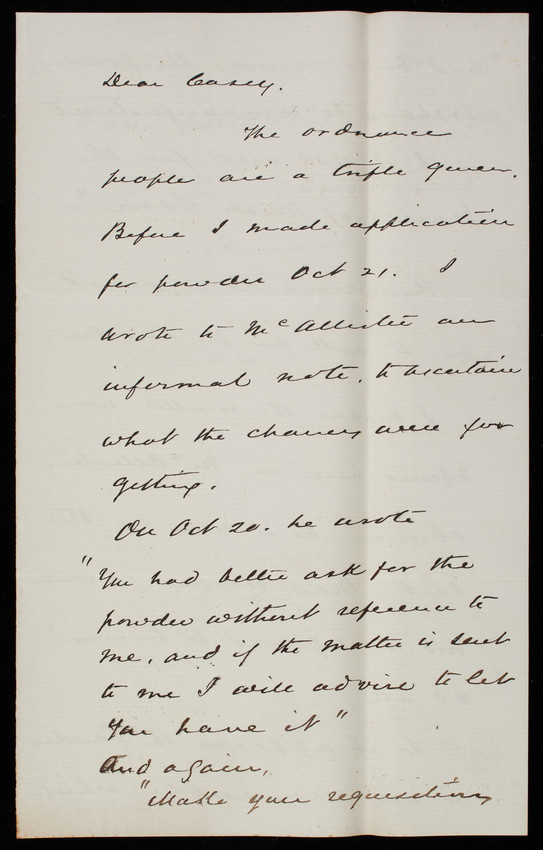 Dear Casey.
The ordnance
people are a trifle queer.
Before I made application
for powder Oct 21. I
wrote to McAllister an
informal note, to ascertain
what the chances were for
getting.
On Oct 20. he wrote
"You had better ask for the
powder without reference to
me, and if the matter is sent
to me I will advise to let
you have it"
And again,
"Make your requisition